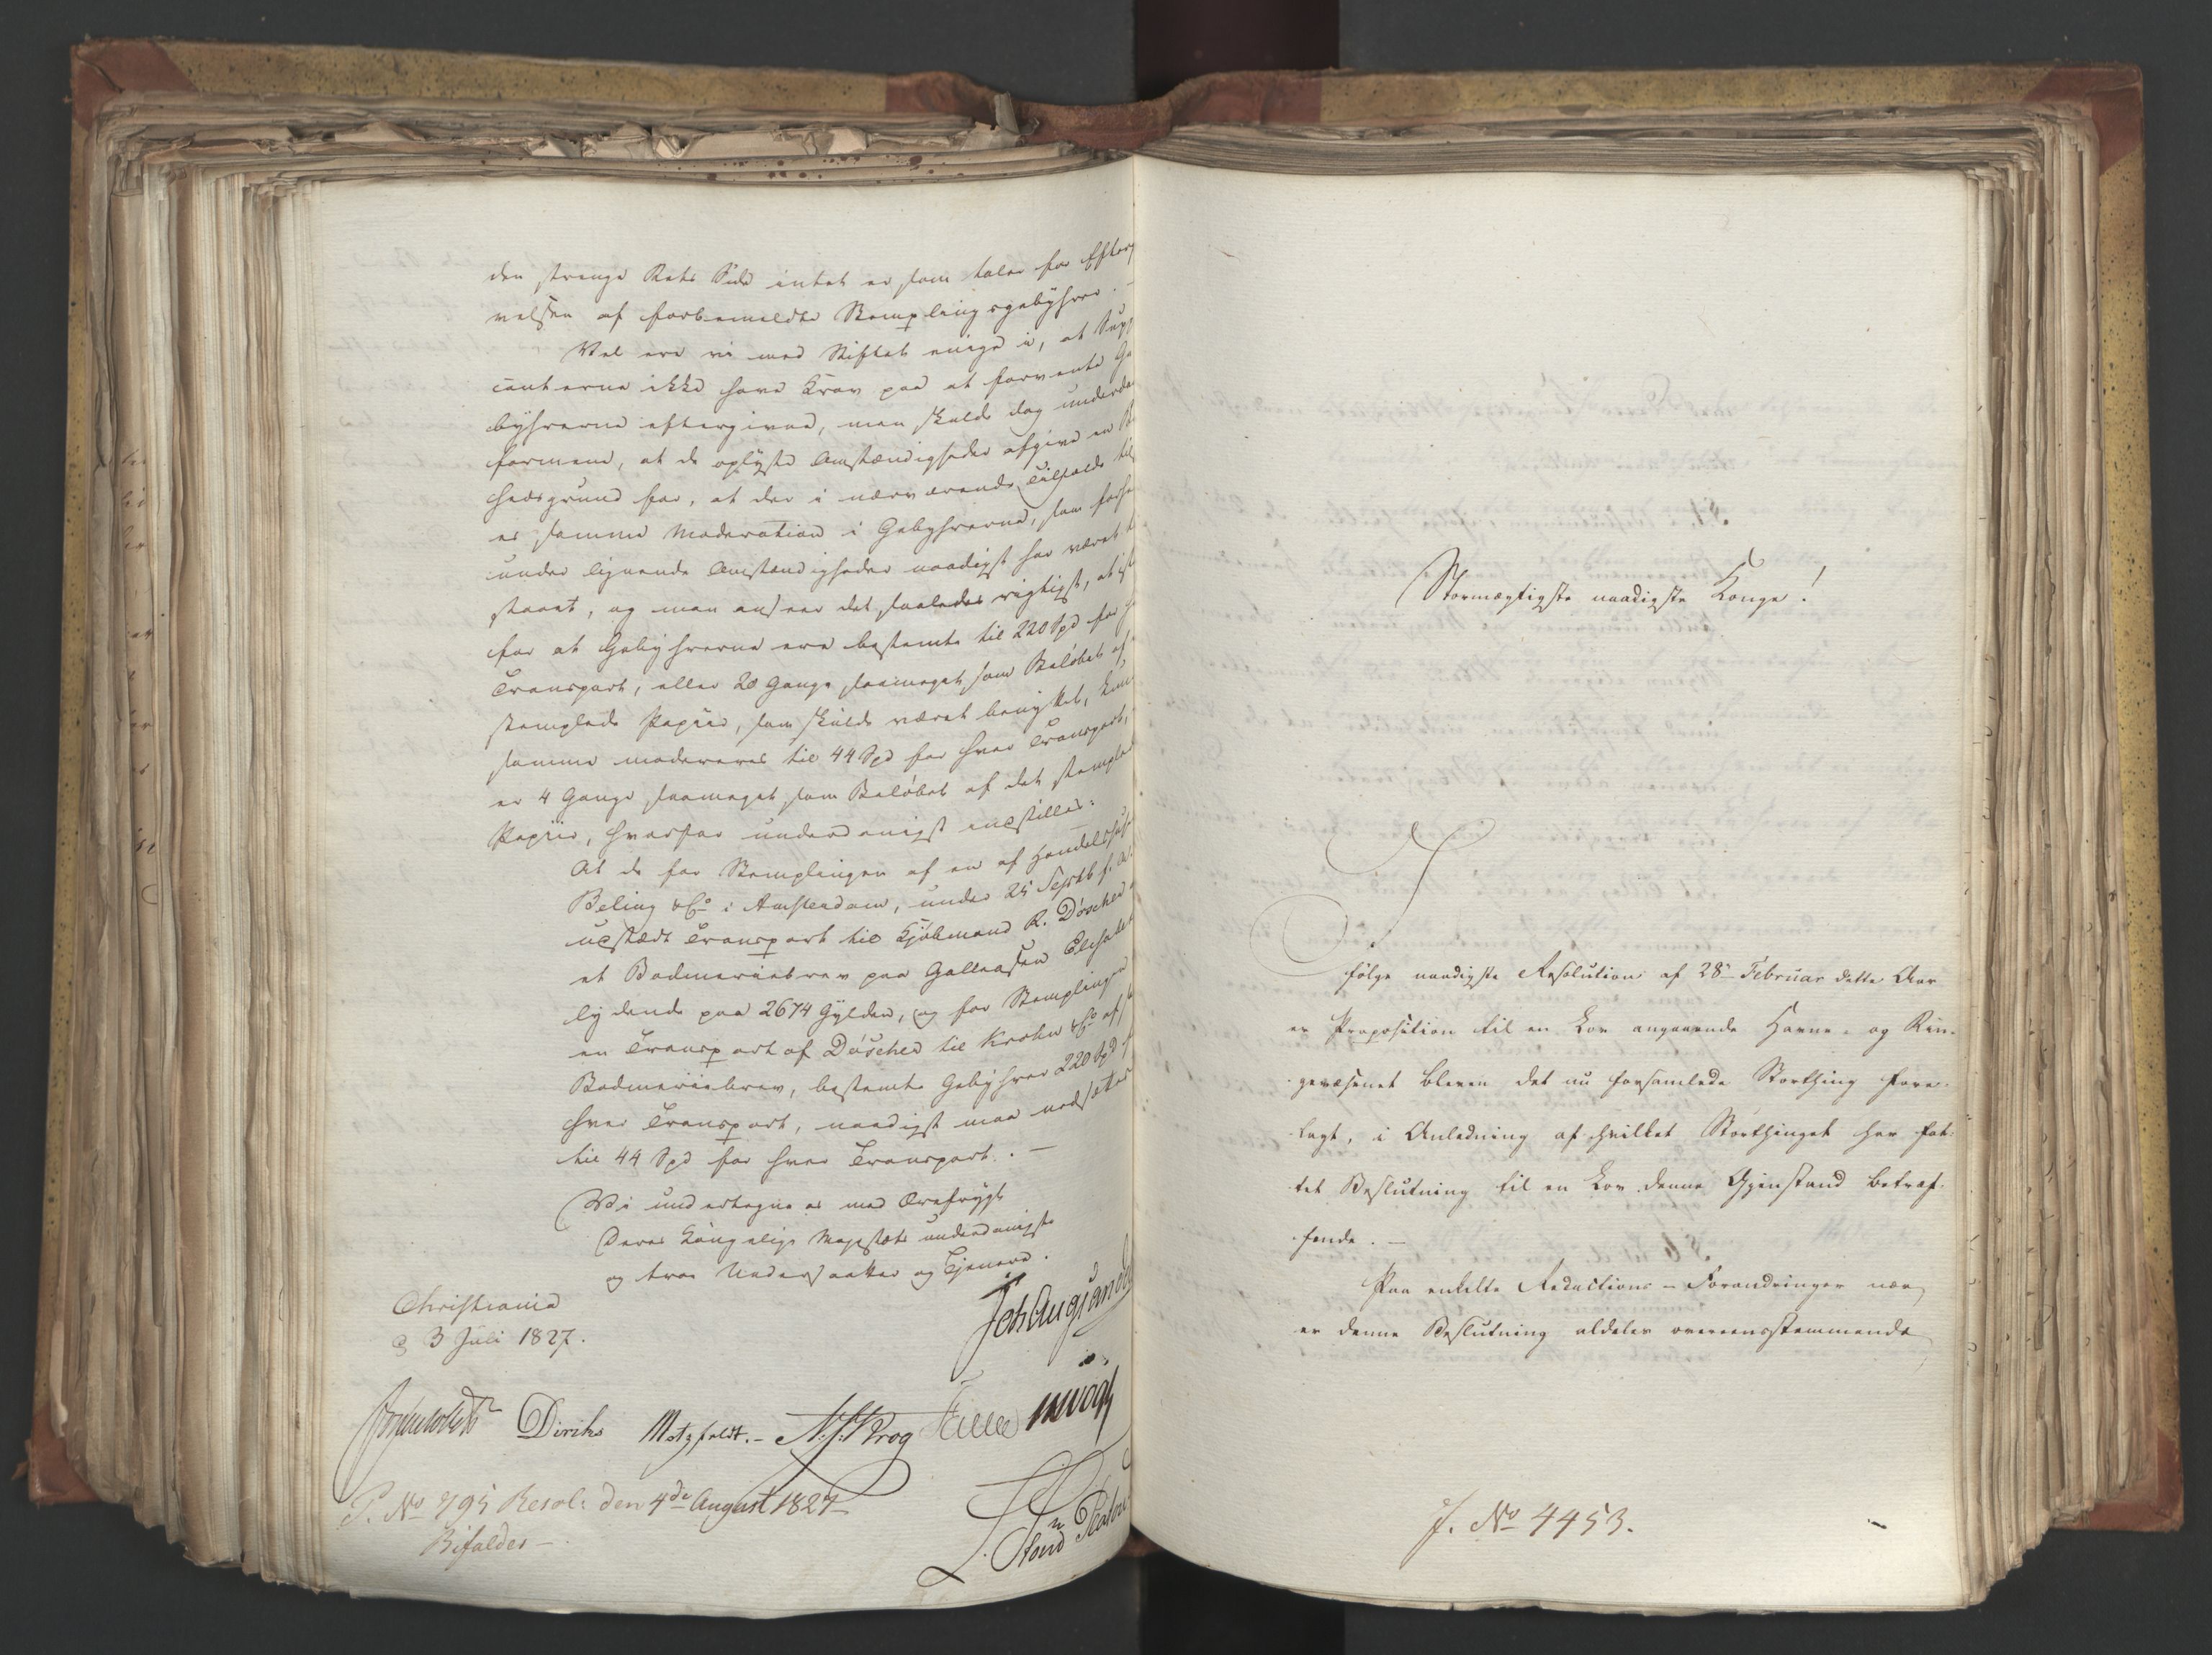 den strenge Rets Side intet er som taler for Efterg
velsen af forbemeldte Stemplingsgebyhrer. –
Vel ere vi med Stiftet enige i, at Supp
canterne ikke have Krav paa at forvente Ge
byhrerne eftergivne, men skulde dog underda
formene, at de oplyste Omstændigheder afgive en Bi
hedsgrund for, at der i nærværende Tilfælde til
es samme Moderation i Gebyhrerne, som forhe
under lignende Omstændigheder naadigst har været
staaet, og man anseer det saaledes rigtigst, at ist
for at Gebyhrerne ere bestemte til 220 Spd for h
Transport, eller 20 Gange saameget som Beløbet af
stemplede Papiir, som skulde været benyttet, kun
samme modereres til 44 Spd for hver Transport,
er 4 Gange saameget som Beløbet af det stemplede
Papiir, hvorfor underdanigst indstilles:
At de for Stemplingen af en af Handelshuset
Beling & Co i Amsterdam, under 25 Septb f. A.
udstædt Transport til Kjøbmand R. Døscher
et Bodmeriebrev paa Galleasen Elisabet
lydende paa 2674 Gylden, og for Stemplingen
en Transport af Døscher til Krohn & Co af
Bodmeriebrev, bestemte Gebyhrer 220 Spd f
hver Transport, naadigst maa nedsættes
til 44 Spd for hver Transport. –
Vi undertegne os med Ærefrygt
Deres Kongelige Majestæts underdanigste
og troe Undersaatter og Tjenere.
Christiania
d 3 Juli 1827.
Joh Aug Sandel
Diriks Motzfeldt. – N. J. Krog Fasting JHVogt
P. No 795 Resol: den 4de August 1827
Bifaldes –
Stormægtigste naadigste Konge!
I
følge naadigste Resolution af 28de Februar dette Aar
er Proposition til en Lov angaaende Havne- og Rin-
gevæsenet bleven det nu forsamlede Storthing fore-
lagt, i Anledning af hvilket Storthinget har fat-
tet Beslutning til en Lov denne Gjenstand betræf-
fende. –
Paa enkelte Redactions-Forandringer nær
er denne Beslutning aldeles overeensstemmende
J. No 4453.